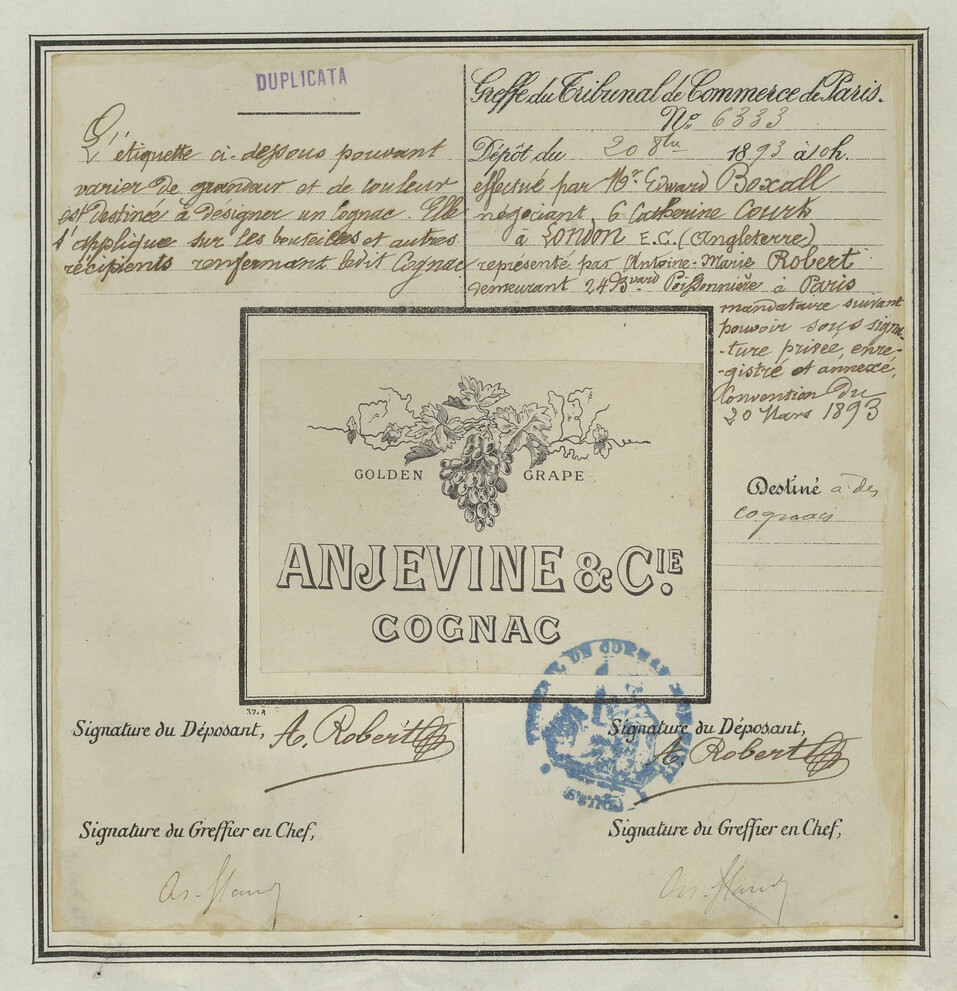 DUPLICATA
L'étiquette ci-dessous pouvant
varier de grandeur et de couleur
est destinée à désigner un Cognac. Elle
s'applique sur les bouteilles et autres
récipients renfermant ledit Cognac
Greffe du Tribunal de Commerce de Paris.
N° 6333
Dépôt du 20 8bre 1893 à 10 h.
effectué par Mr Edward Boxall
négociant, 6 Catherine Court
à London E.C. (Angleterre)
représenté par Antoine-Marie Robert
demeurant 24 Bvard Poissonnière à Paris
mandataire suivant
pouvoir sous signa-
-ture privée, enre-
-gistré et annexé,
Convention du
20 Mars 1893
Destiné à des
cognacs
GOLDEN GRAPE
ANJEVINE & CIE.
COGNAC
Signature du Déposant, A. Robert
Signature du Déposant,
A. Robert
Signature du Greffier en Chef,
Signature du Greffier en Chef,